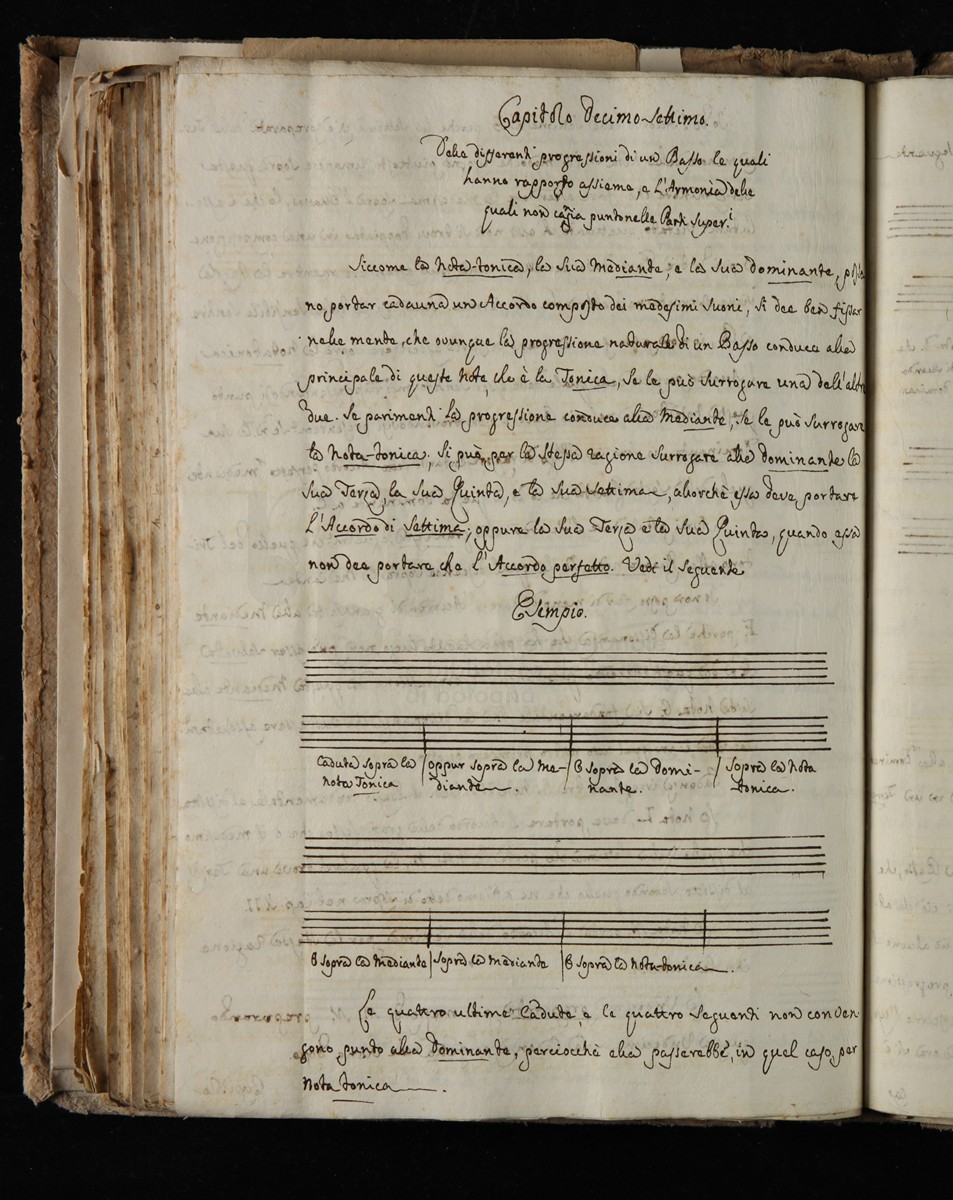 Capitolo Decimo-Settimo.
Delle differenti progressioni di un Basso le quali
hanno rapporto assieme, e l'Armonia delle
quali non cangia punto nelle Parti Super.i
Siccome la Nota-tonica, la sua Mediante, e la sua dominante, posso
no portar cadauna un Accordo composto dei medesimi suoni, si dee ben fissar
nelle mente, che ovunque la progressione naturale di un Basso conduce alla
principale di queste Note, che è la Tonica, se le può surrogare una dell'altre
due. Se parimenti la progressione conduce alla Mediante, se le può surrogare
la Nota-tonica; si può per la stessa ragione surrogare alla dominante la
sua Terza, la sua Quinta, e la sua Settima, allorchè essa deve portare
l'Accordo di Settima; oppure la sua Terza e la sua Quinta, quando essa
non dee portare che l'Accordo perfetto. Vedi il seguente
Esempio.
Caduta sopra la oppur sopra la Me- O sopra la Domi- sopra la Nota
Nota Tonica diante. nante. tonica.
O sopra la Mediante sopra la Mediante O sopra la Nota-tonica.
Le quattro ultime Cadute, e le quattro seguenti non conven
gono punto alla Dominante, perciocchè ella passerebbe, in quel caso, per
Nota tonica.